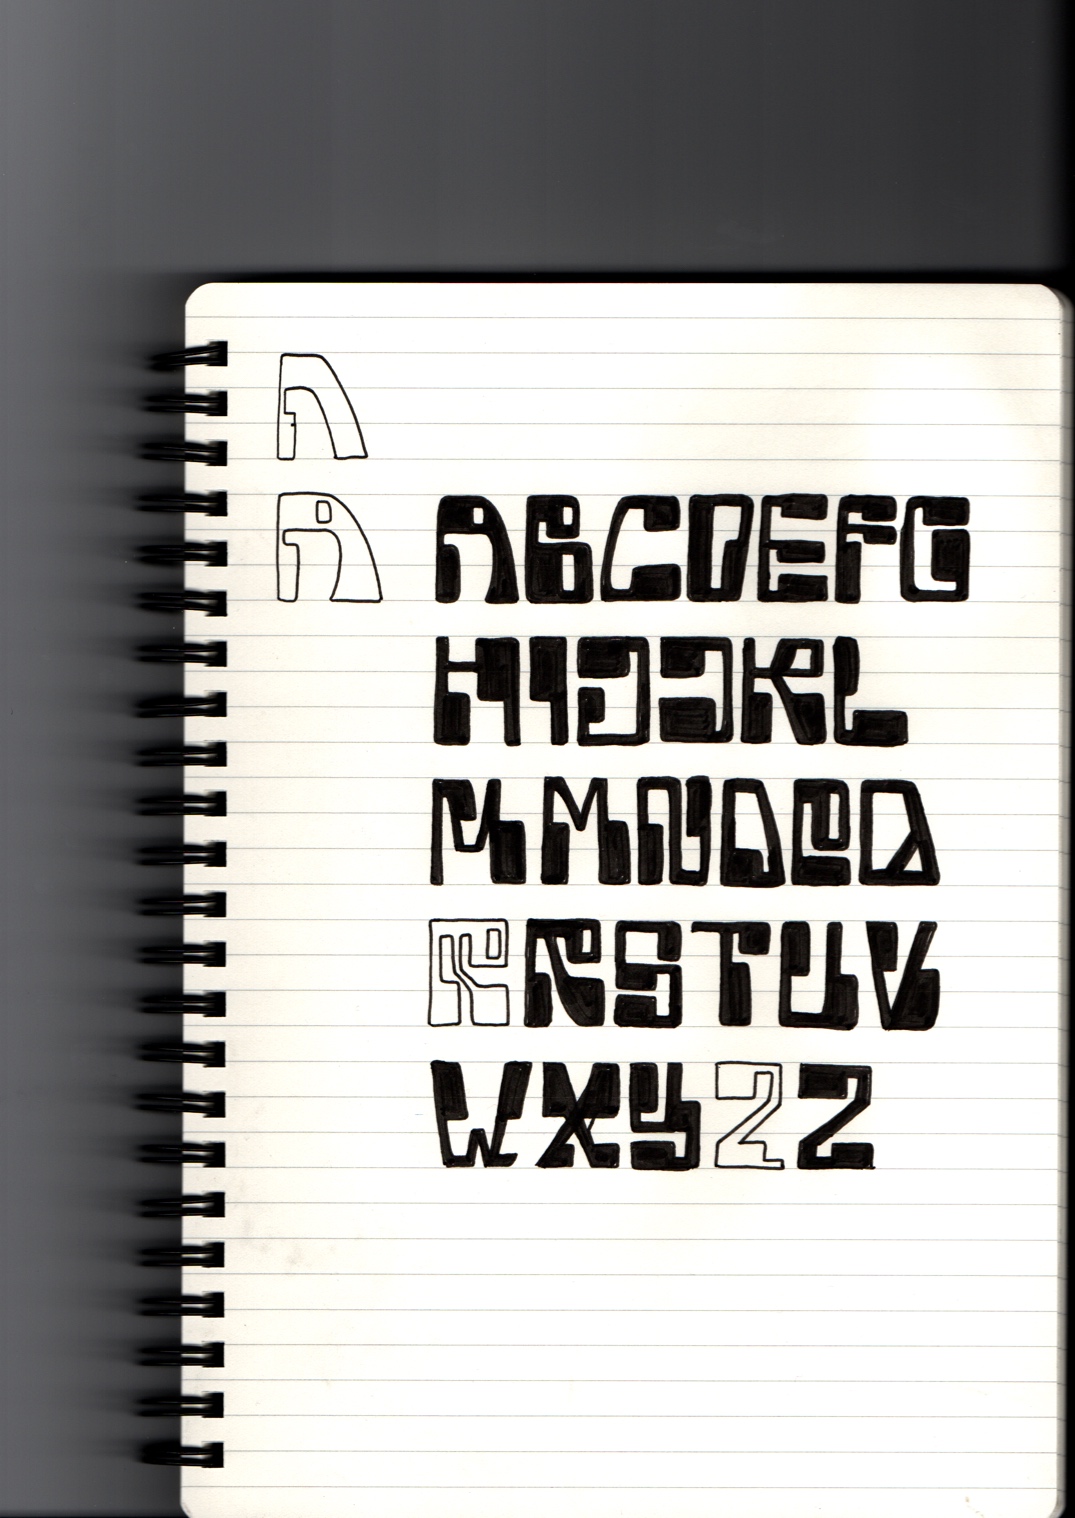 A
A ABCDEFG
HIJJKL
MMNOPQ
RRSTUV
WXYZZ